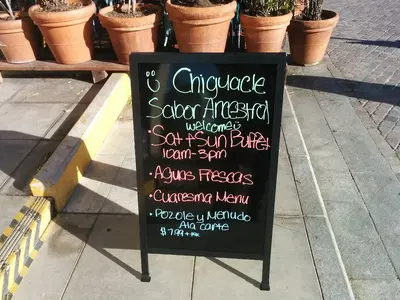 Chiguacle
Sabor Ancestral
welcome
• Sat + Sun Buffet
10am-3pm
• Aguas Frescas
• Cuaresma Menu
• Pozole y Menudo
Ala carte
$7.99 + tax